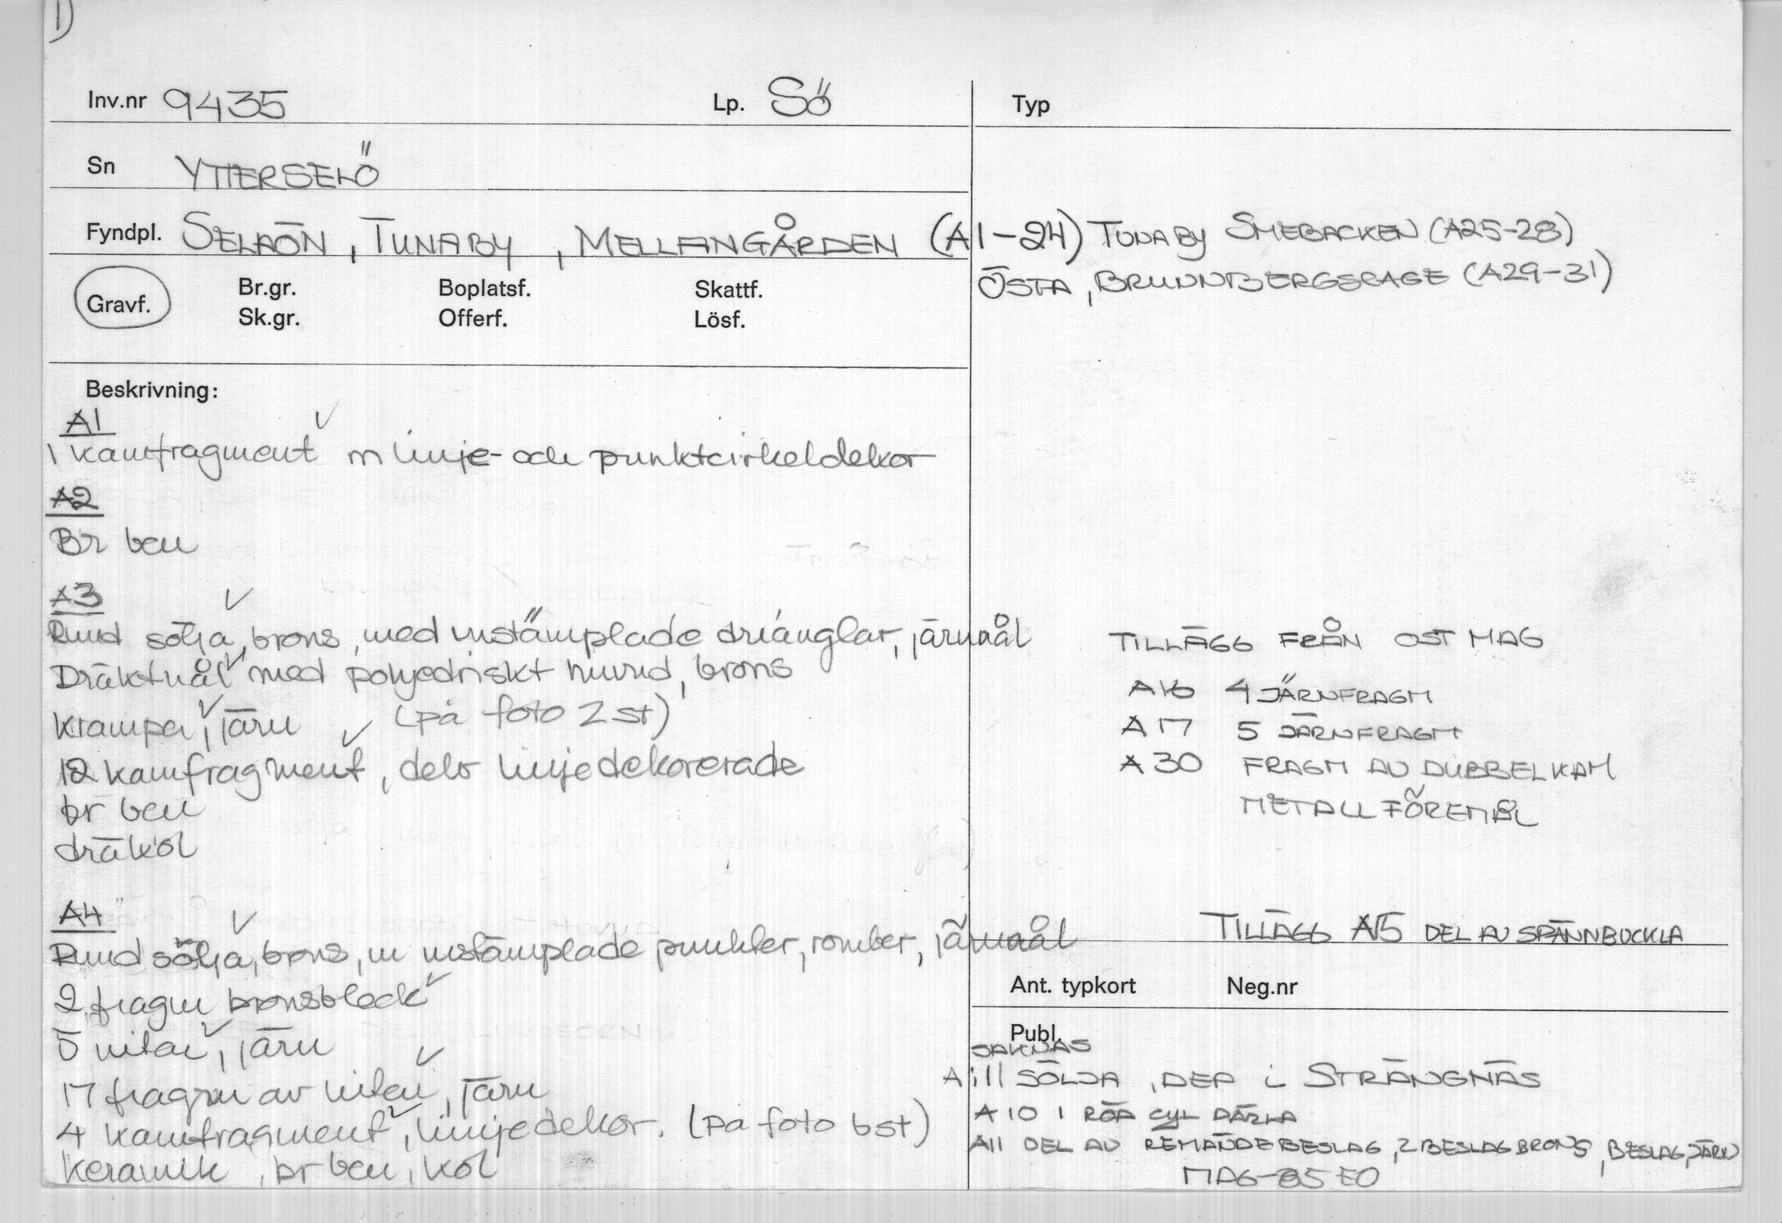 1)
Inv.nr 9435 Lp. Sö Typ
Sn YTTERSELÖ
Fyndpl. SELAÖN, TUNABY, MELLANGÅRDEN (A1-24) TUNABY SMEBACKEN (A25-28)
ÖSTA, BRUNNBERGSHAGE (A29-31)
Gravf. Br.gr. Boplatsf. Skattf.
Sk.gr. Offerf. Lösf.
Beskrivning:
A1
1 kamfragment m linje- och punktcirkeldekor
A2
Br ben
A3
Rund sölja, brons, med instämplade trianglar, järnnål
Dräktnål med polyedriskt huvud, brons
krampa, järn (på foto 2 st)
12 kamfragment, delv linjedekorerade
br ben
träkol
A4
Rund sölja, brons, m instämplade punkter, romber, järnnål
2 fragm bronsbleck
5 nitar, järn
17 fragm av nitar, järn
4 kamfragment, linjedekor. (på foto 6 st)
keramik, br ben, kol
TILLÄGG FRÅN OST MAG
A16 4 JÄRNFRAGM
A17 5 JÄRNFRAGM
A30 FRAGM AV DUBBELKAM
METALLFÖREMÅL
TILLÄGG A15 DEL AV SPÄNNBUCKLA
Ant. typkort Neg.nr
Publ.
SAKNAS
A:11 SÖLJA, DEP i STRÄNGNÄS
A10 1 RÖD CYL PÄRLA
A11 DEL AV REMÄNDEBESLAG, 2 BESLAG BRONS, BESLAG, JÄRN
MAG-85 EO